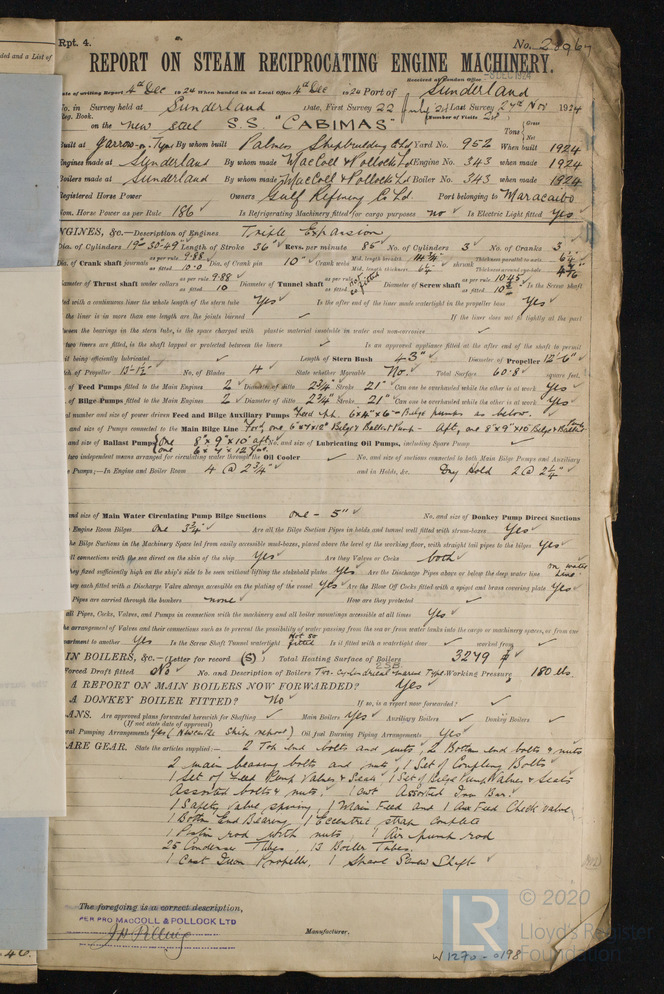 Rpt. 4.
No. 28967
REPORT ON STEAM RECIPROCATING ENGINE MACHINERY.
Received at London Office -8 DEC 1924
Date of writing Report 4th Dec 1924 When handed in at Local Office 4th Dec 1924 Port of Sunderland
No. in Survey held at Sunderland Date, First Survey 22 July 24 Last Survey 27th Nov 1924
Reg. Book. (Number of Visits
on the new steel S.S "CABIMAS" Tons Gross Net
Built at Jarrow-on-Tyne By whom built Palmers Shipbuilding Co Ld Yard No. 952 When built 1924
Engines made at Sunderland By whom made MacColl & Pollock Ld Engine No. 343 when made 1924
Boilers made at Sunderland By whom made MacColl & Pollock Ld Boiler No. 343 when made 1924
Registered Horse Power Owners Gulf Refining Co Ld. Port belonging to Maracaibo
Nom. Horse Power as per Rule 186 Is Refrigerating Machinery fitted for cargo purposes no Is Electric Light fitted Yes
ENGINES, &c.—Description of Engines Triple Expansion
Dia. of Cylinders 19"-30"-49" Length of Stroke 36" Revs. per minute 85 No. of Cylinders 3 No. of Cranks 3
Dia. of Crank shaft journals as per rule 9.88 as fitted 10.0 Dia. of Crank pin 10" Crank webs Mid. length breadth Mid. length thickness 6¼" shrunk Thickness parallel to axis Thickness around eye-hole
Diameter of Thrust shaft under collars as per rule 9.88 as fitted 10 Diameter of Tunnel shaft as per rule as fitted not fitted Diameter of Screw shaft as per rule 10.45 as fitted Is the Screw shaft
fitted with a continuous liner the whole length of the stern tube Yes Is the after end of the liner made watertight in the propeller boss Yes
the liner is in more than one length are the joints burned If the liner does not fit tightly at the part
between the bearings in the stern tube, is the space charged with plastic material insoluble in water and non-corrosive
two liners are fitted, is the shaft lapped or protected between the liners Is an approved appliance fitted at the after end of the shaft to permit
oil being efficiently lubricated Length of Stern Bush 43" Diameter of Propeller 12'-6"
Pitch of Propeller 13'-1½" No. of Blades 4 State whether Moveable No. Total Surface 60.8 square feet.
of Feed Pumps fitted to the Main Engines 2 Diameter of ditto 2¾" Stroke 21" Can one be overhauled while the other is at work Yes
of Bilge Pumps fitted to the Main Engines 2 Diameter of ditto 2¾" Stroke 21" Can one be overhauled while the other is at work Yes
number and size of power driven Feed and Bilge Auxiliary Pumps Feed 6"x4"x6" - Bilge pumps as below.
and size of Pumps connected to the Main Bilge Line Ford, one Bilge & Ballast Pump - Aft, one 8"x9"x10" Bilge & Ballast
and size of Ballast Pumps One 8"x9"x10" aft. one 6"x7"x12" for. No. and size of Lubricating Oil Pumps, including Spare Pump
two independent means arranged for circulating water through the Oil Cooler No. and sizes of suctions connected to both Main Bilge Pumps and Auxiliary
Pumps;—In Engine and Boiler Room 4 @ 2¾" and in Holds, &c. Dry Hold 2 @ 2¼"
and size of Main Water Circulating Pump Bilge Suctions one - 5" No. and size of Donkey Pump Direct Suctions
Engine Room Bilges One 3¾" Are all the Bilge Suction Pipes in holds and tunnel well fitted with strum-boxes Yes
the Bilge Suctions in the Machinery Space led from easily accessible mud-boxes, placed above the level of the working floor, with straight tail pipes to the bilges Yes
all connections with the sea direct on the skin of the ship Yes Are they Valves or Cocks both
they fixed sufficiently high on the ship's side to be seen without lifting the stokehold plates Yes Are the Discharge Pipes above or below the deep water line on water line
they each fitted with a Discharge Valve always accessible on the plating of the vessel Yes Are the Blow Off Cocks fitted with a spigot and brass covering plate Yes
Pipes are carried through the bunkers none How are they protected
all Pipes, Cocks, Valves, and Pumps in connection with the machinery and all boiler mountings accessible at all times Yes
the arrangement of Valves and their connections such as to prevent the possibility of water passing from the sea or from water tanks into the cargo or machinery spaces, or from one
compartment to another Yes Is the Screw Shaft Tunnel watertight Not so fitted Is it fitted with a watertight door worked from
MAIN BOILERS, &c.—(Letter for record (S)) Total Heating Surface of Boilers 3279
Forced Draft fitted No No. and Description of Boilers Two Cylindrical Marine Type. 2SB Working Pressure 180 lbs
A REPORT ON MAIN BOILERS NOW FORWARDED? Yes
A DONKEY BOILER FITTED? No If so, is a report now forwarded?
PLANS. Are approved plans forwarded herewith for Shafting Main Boilers Yes Auxiliary Boilers Donkey Boilers
(If not state date of approval)
General Pumping Arrangements Yes (Newcastle Ship report) Oil fuel Burning Piping Arrangements Yes
SPARE GEAR. State the articles supplied:— 2 Top end bolts and nuts, 2 Bottom end bolts & nuts
2 main bearing bolts and nuts, 1 Set of Coupling Bolts
1 Set of Feed Pump Valves & Seats 1 Set of Bilge Pump Valves & Seats
Assorted bolts & nuts. 1 cwt Assorted Iron Bar.
1 Safety valve spring, 1 Main Feed and 1 Aux Feed Check valve,
1 Bottom End Bearing 1 Eccentric strap complete
1 Piston rod with nuts, 1 Air pump rod
25 Condenser Tubes, 13 Boiler Tubes.
1 Cast Iron Propeller, 1 Spare Screw Shaft
The foregoing is a correct description,
PER PRO MACCOLL & POLLOCK LTD
Manufacturer.
© 2020
LR
Lloyd's Register
Foundation
W1270-0198